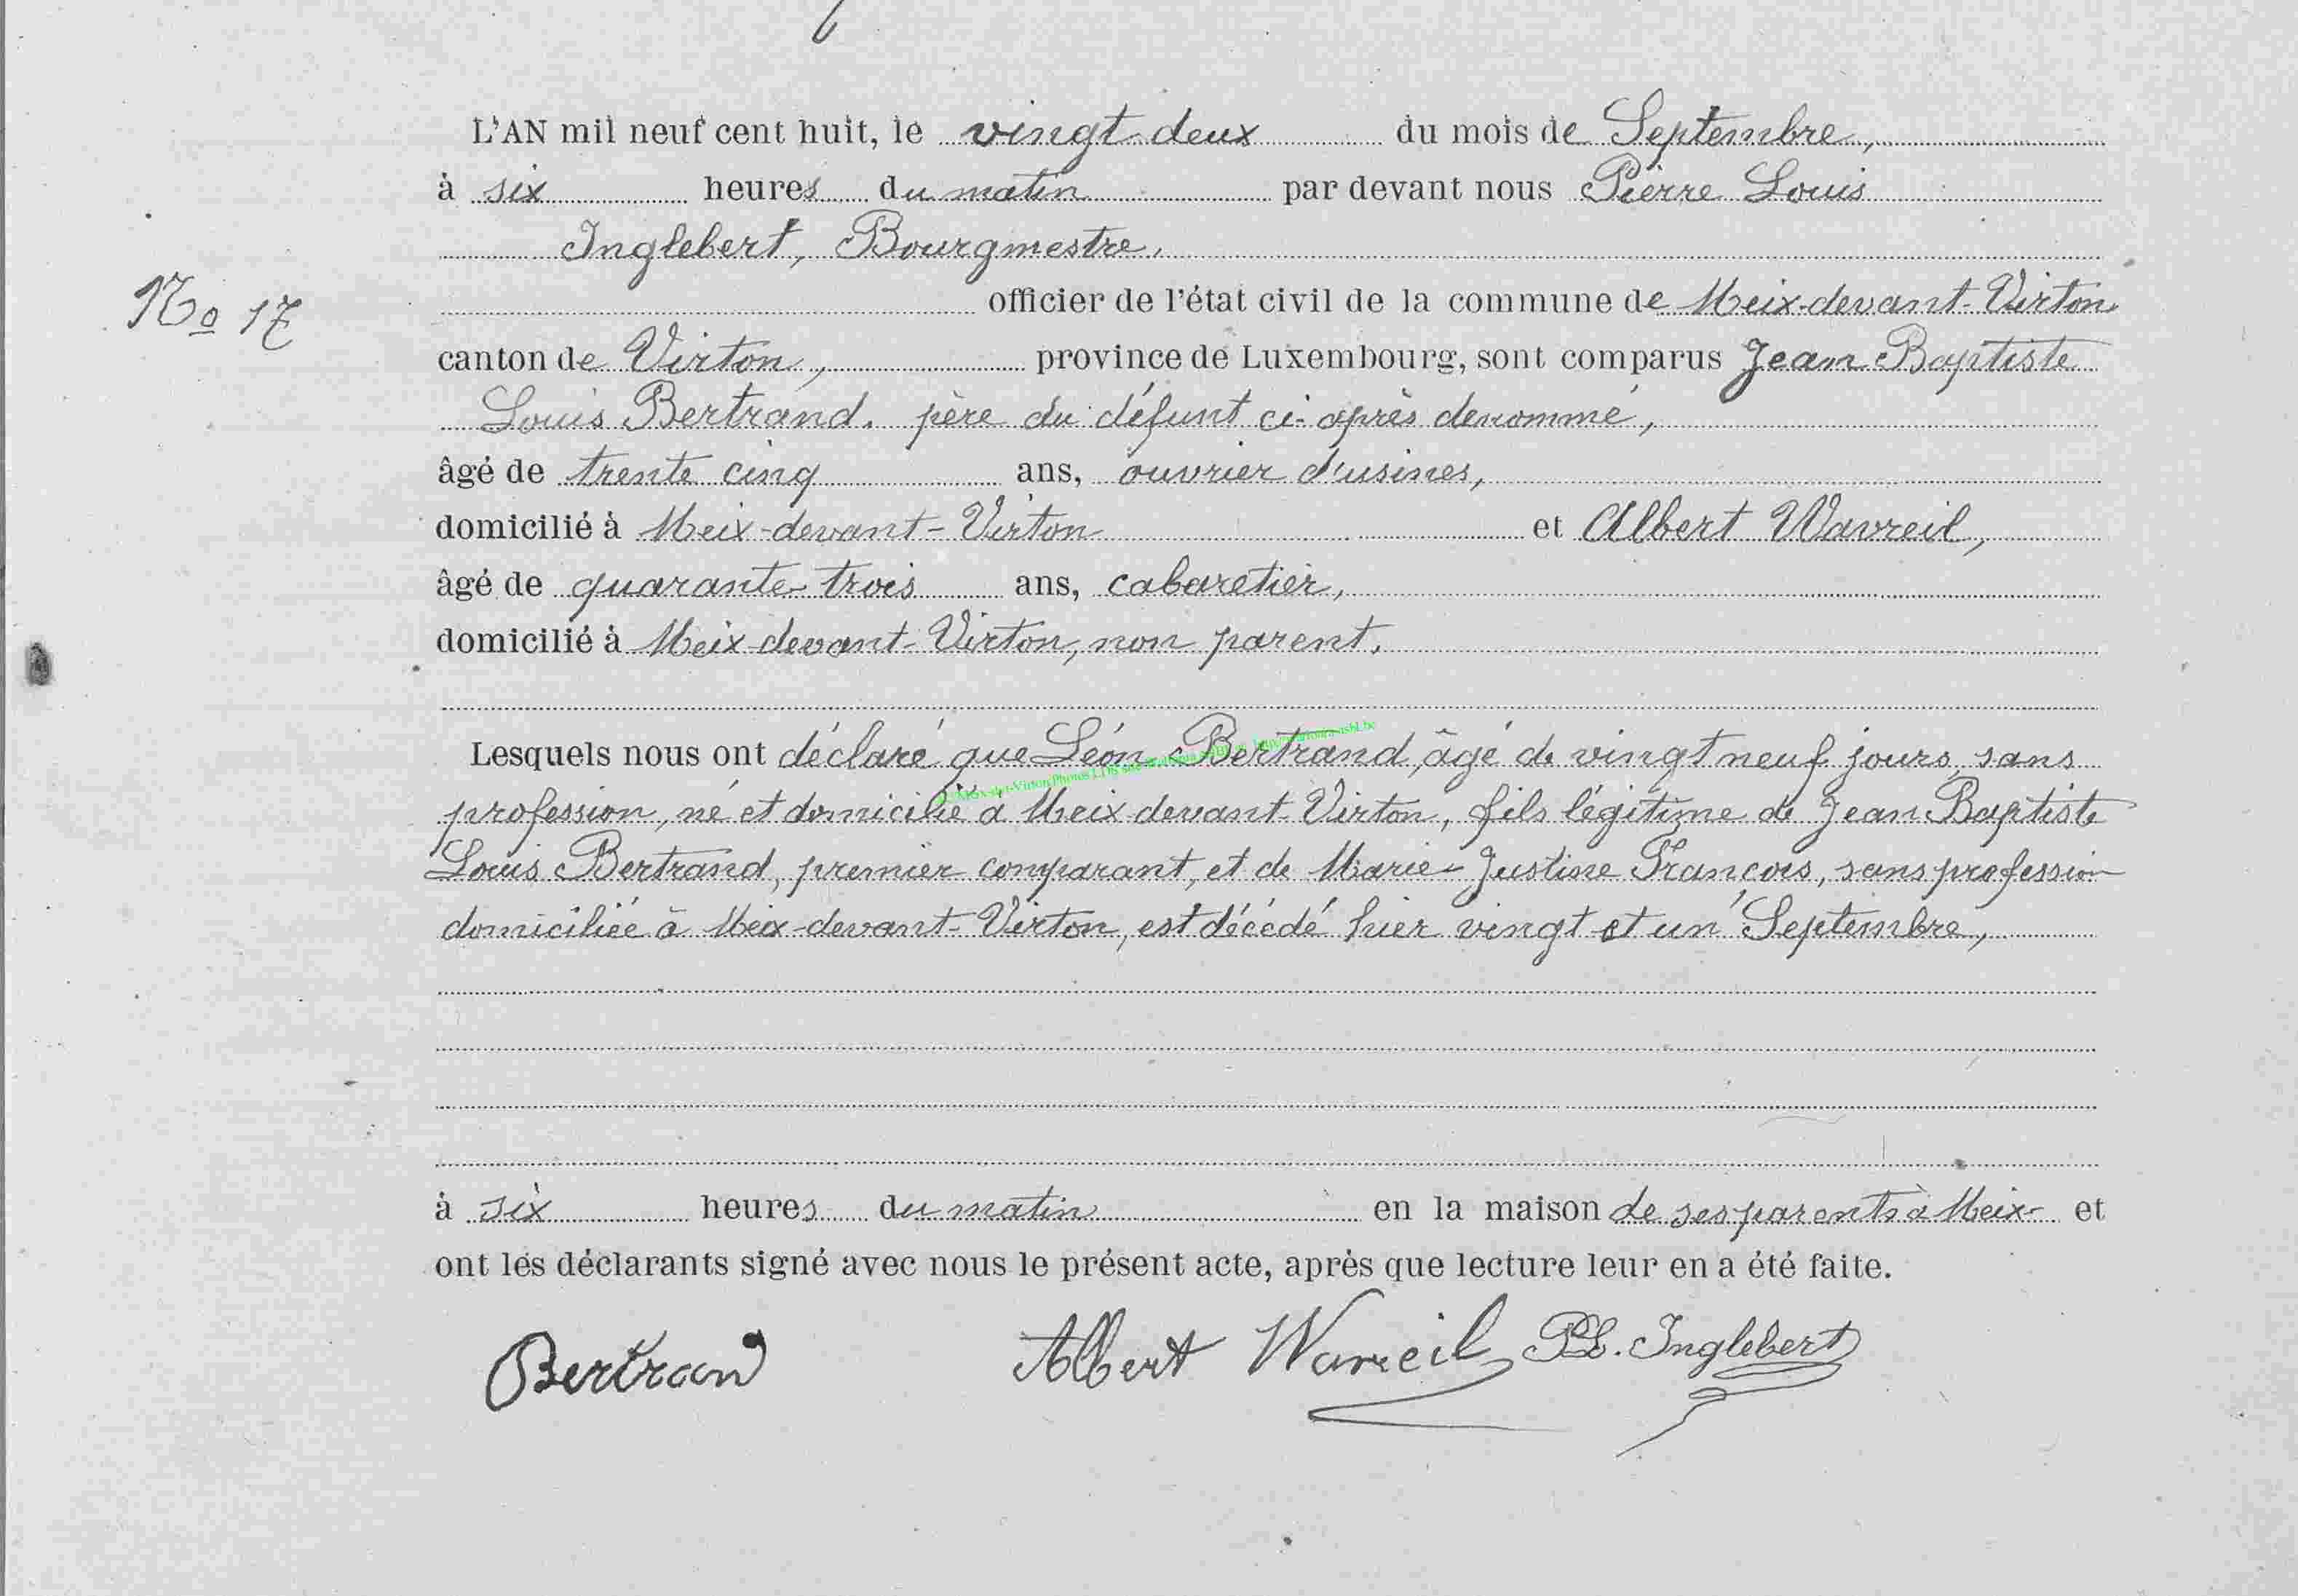 L'AN mil neuf cent huit, le vingt-deux du mois de Septembre,
à six heures du matin par devant nous Pierre Louis
Inglebert, Bourgmestre,
officier de l'état civil de la commune de Meix-devant-Virton
No 17
canton de Virton, province de Luxembourg, sont comparus Jean Baptiste
Louis Bertrand, père du défunt ci-après denommé,
âgé de trente cinq ans, ouvrier d'usines,
domicilié à Meix-devant-Virton et Albert Wavreil,
âgé de quarante-trois ans, cabaretier,
domicilié à Meix-devant-Virton, non parent.
Lesquels nous ont déclaré que Léon Bertrand, âgé de vingt neuf jours, sans
profession, né et domicilié à Meix-devant-Virton, fils légitime de Jean Baptiste
Louis Bertrand, premier comparant, et de Marie-Justine François, sans profession
domiciliée à Meix-devant-Virton, est décédé hier vingt et un Septembre,
à six heures du matin en la maison de ses parents à Meix- et
ont les déclarants signé avec nous le présent acte, après que lecture leur en a été faite.
Bertrand Albert Wavreil PL. Inglebert